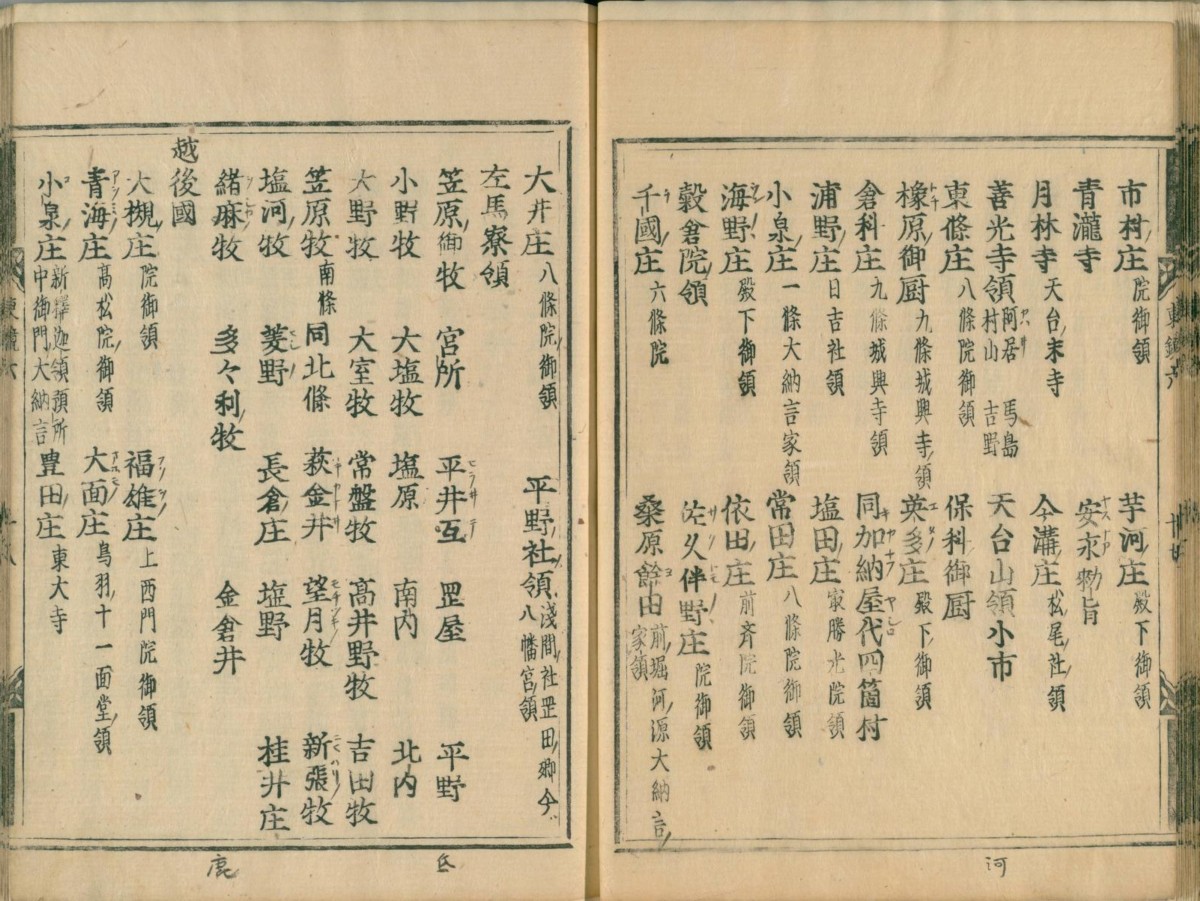 市村庄 院御領 芋河庄 殿下御領
青瀧寺 安永勅旨
月林寺 天台末寺 今溝庄 松尾社領
善光寺領 阿居 馬島 村山 吉野 天台山領小市
東條庄 八條院御領 保科御厨
橡原御厨 九條城興寺領 英多庄 殿下御領
倉科庄 九條城興寺領 同加納屋代四箇村
浦野庄 日吉社領 塩田庄 冣勝光院領
小泉庄 一條大納言家領 常田庄 八條院御領
海野庄 殿下御領 依田庄 前斉院御領
穀倉院領 佐久伴野庄 院御領
千國庄 六條院 桑原餘田 前堀河源大納言家領
大井庄 八條院御領 平野社領 淺間社罡田郷今八幡宮領
左馬寮領
笠原御牧 宮所 平井弖 罡屋 平野
小野牧 大塩牧 塩原 南内 北内
大野牧 大室牧 常盤牧 高井野牧 吉田牧
笠原牧 南條 同北條 萩金井 望月牧 新張牧
塩河牧 菱野 長倉庄 塩野 桂井庄
緒麻牧 多々利牧 金倉井
越後國
大槻庄 院御領 福雄庄 上西門院御領
青海庄 高松院御領 大面庄 鳥羽十一面堂領
小泉庄 新釋迦領預所中御門大納言 豊田庄 東大寺
河
鹿